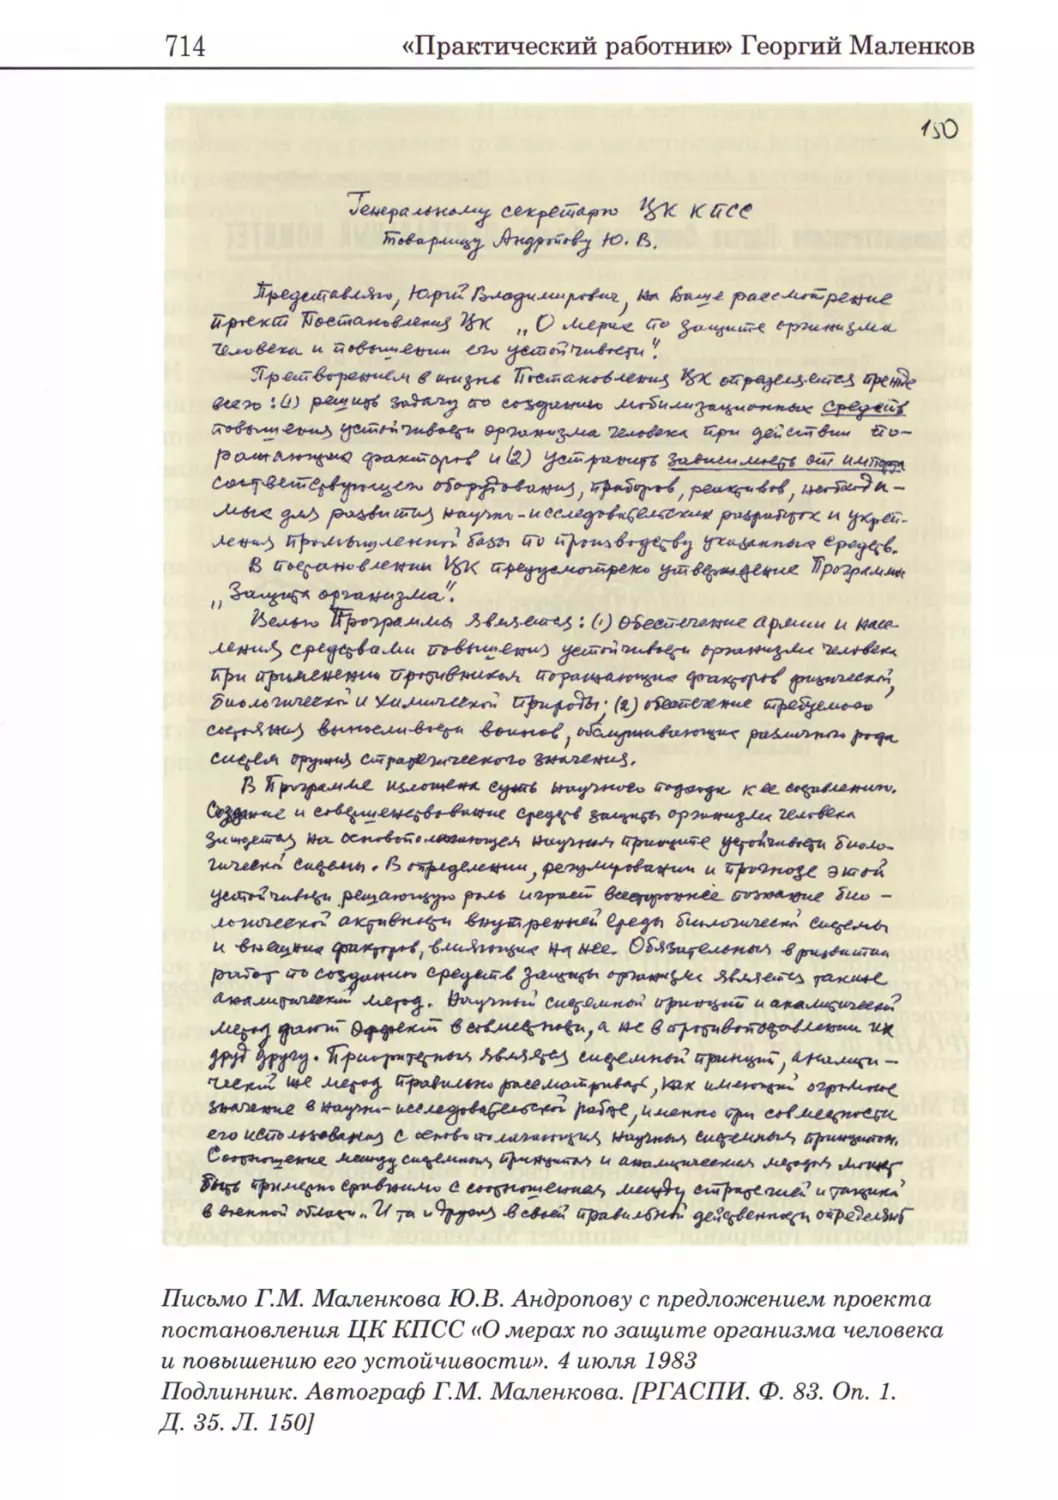 714
«Практический работник» Георгий Маленков
150
Генеральному секретарю ЦК КПСС
Товарищу Андропову Ю. В.
Представляю, Юрий Владимирович, на Ваше рассмотрение
проект Постановления ЦК „О мерах по защите организма
человека и повышении его устойчивости".
Претворением в жизнь Постановления ЦК определяется прежде
всего: (1) решить задачу по созданию мобилизационных средств
повышения устойчивости организма человека при действии по-
ражающих факторов и (2) устранить зависимость от импорта
соответствующего оборудования, приборов, реактивов, необходи-
мых для развития научно-исследовательских разработок и укреп-
ления промышленной базы по производству указанных средств.
В постановлении ЦК предусмотрено утверждение Программы
„Защита организма".
Целью Программы является: (1) обеспечение Армии и насе-
ления средствами повышения устойчивости организма человека
при применении противником поражающих факторов физической,
биологической и химической природы; (2) обеспечение требуемого
состояния выносливости воинов, обслуживающих различного рода
систем оружия стратегического значения.
В Программе изложена суть научного подхода к ее составлению.
Создание и совершенствование средств защиты организма человека
зиждется на основополагающем научном принципе устойчивости биоло-
гической системы. В определении, регулировании и прогнозе этой
устойчивости решающую роль играет всестороннее познание био-
логической активности внутренней среды биологической системы
и внешних факторов, влияющих на нее. Обязательным в развитии
работ по созданию средств защиты организма является также
аналитический метод. Научный системный принцип и аналитический
метод дают эффект в совместности, а не в противопоставлении их
друг другу. Приоритетным является системный принцип, аналити-
ческий же метод правильно рассматривать, как имеющий огромное
значение в научно-исследовательской работе, именно при совместности
его использования с основополагающим научным системным принципом.
Соотношение между системным принципом и аналитическим методом может
быть примерно сравнимо с соотношением между стратегией и тактикой
в военной области. И та и другая в своей правильной действенности определяют
Письмо Г.М. Маленкова Ю.В. Андропову с предложением проекта
постановления ЦК КПСС «О мерах по защите организма человека
и повышению его устойчивости». 4 июля 1983
Подлинник. Автограф Г.М. Маленкова. [РГАСПИ. Ф. 83. Оп. 1.
Д. 35. Л. 150]